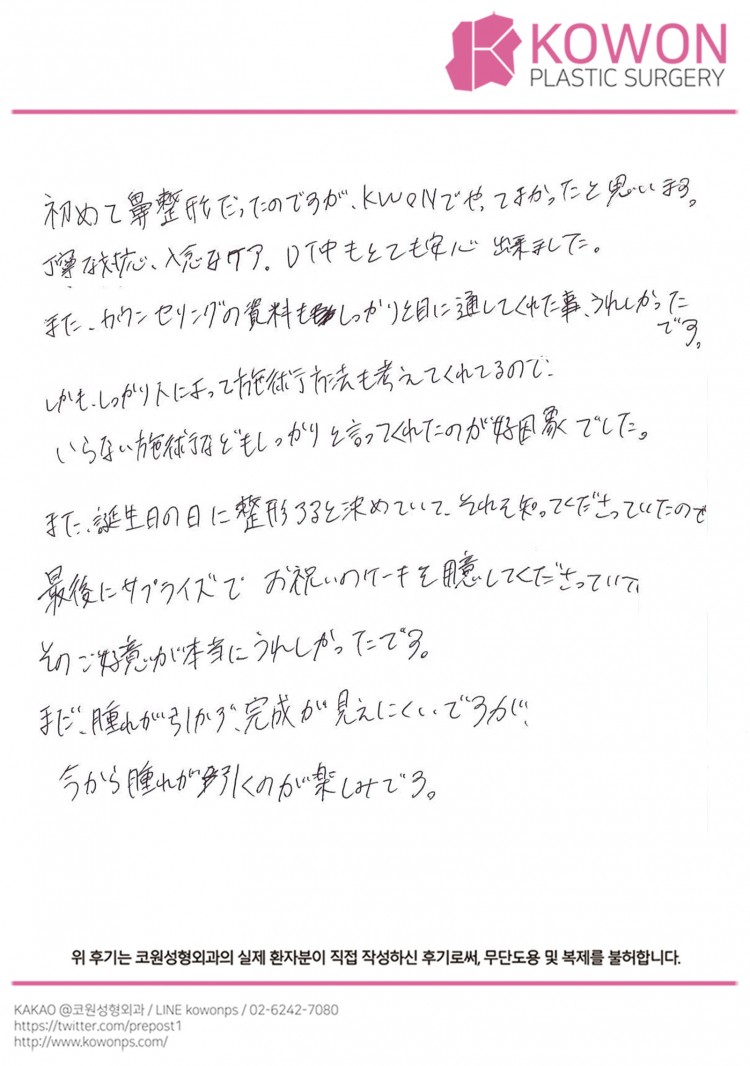 KOWON
PLASTIC SURGERY
初めて鼻整形だったのですが、KWONでやってよかったと思います。
丁寧な対応、入念なケア。DT中もとても安心 出来ました。
また、カウンセリングの資料もしっかりと目に通してくれた事、うれしかった
です。
しかも、しっかり人によって施術方法も考えてくれてるので、
いらない施術などもしっかりと言ってくれたのが好印象でした。
また、誕生日の日に整形すると決めていて、それを知ってくださっていたので
最後にサプライズで お祝いのケーキを意してくださっていて、
そのご好意が本当にうれしかったです。
まだ、腫れが引かず、完成が見えにくいですが、
今から腫れが引くのが楽しみです。
위 후기는 코원성형외과의 실제 환자분이 직접 작성하신 후기로써, 무단도용 및 복제를 불허합니다.
KAKAO @코원성형외과 / LINE kowonps / 02-6242-7080
https://twitter.com/prepost1
http://www.kowonps.com/